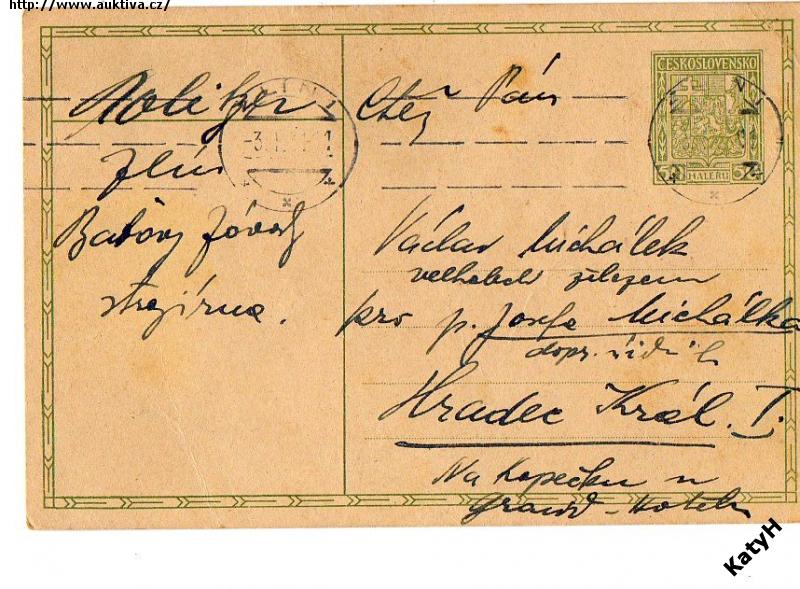 http://www.auktiva.cz/
ČESKOSLOVENSKO
50 HALÉŘŮ 50
Ctěný Pán
Zlín
Baťovy závody
strojírna.
Václav Michálek
velkoobch železem
pro p. Josefa Michálka
Hradec Král. I.
Na Kopečku u
Grand-Hotelu
KatyH